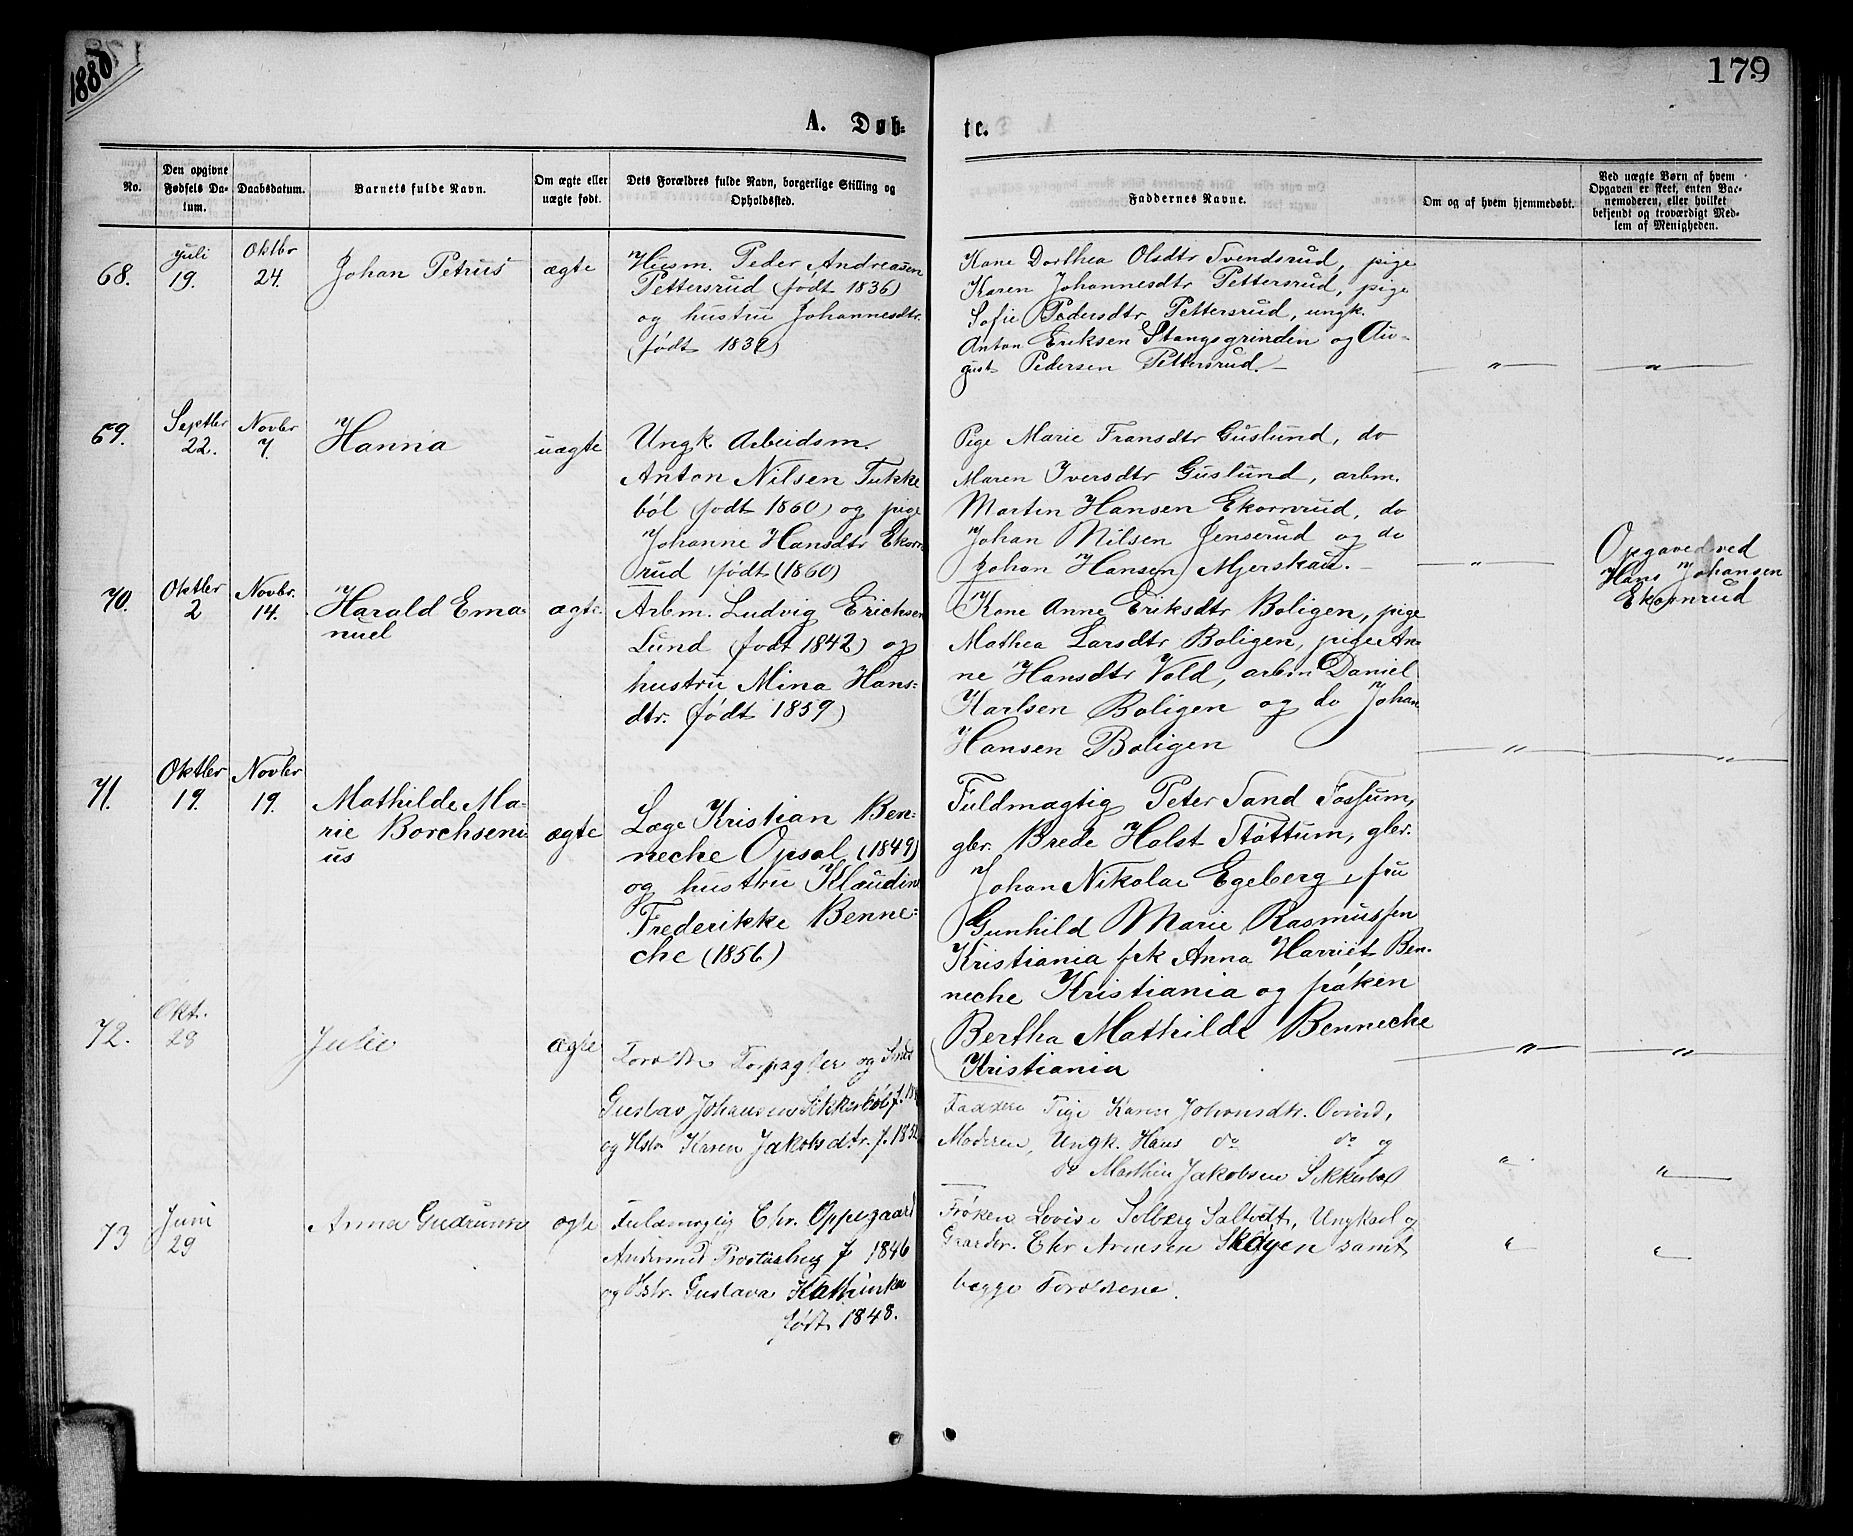 1880
179
A. Døb-
te.
No.
Den opgivne Fødsels Da-tum.
Daabsdatum.
Barnets fulde Navn.
Om ægte eller uægte født.
Dets Forældres fulde Navn, borgerlige Stilling og Opholdssted.
Faddernes Navne.
Om og af hvem hjemmedøbt.
Ved uægte Børn af hvem Opgaven er skeet, enten Bar-nemoderen, eller hvilket bekjendt og troværdigt Med-lem af Menigheden.
68.
Juli
19.
Oktbr
24.
Johan Petrus
ægte
Husm. Peder Andreasen
Pettersrud (født 1836)
og hustru Johannesdtr.
(født 1839)
Kone Dorthea Olsdtr Svendsrud, pige
Karen Johannesdtr Pettersrud, pige
Sofie Pedersdtr Pettersrud, ungk.
Anton Eriksen Stangsgrinden og Au-
gust Pedersen Pettersrud.-
"
"
69.
Septbr
22.
Novbr
7.
Hanna
uægte
Ungk. Arbeidsm.
Anton Nilsen Tukke
bøl (født 1860) og pige
Johanne Hansdtr Ekorn
rud født (1860)
Pige Marie Fransdtr Guslund, do
Maren Iversdtr Guslund, arbm.
Martin Hansen Ekornrud, do
Johan Nilsen Jenserud og do
Johan Hansen Mjerskau.-
"
Opgaved ved
Hans Johansen
Ekornrud
70.
Oktbr
2
Novbr.
14.
Harald Ema-
nuel
ægte
Arbm. Ludvig Erichsen
Lund (født 1842) og
hustru Mina Hans-
dtr. (født 1859)
Kone Anne Eriksdtr Boligen, pige
Mathea Larsdtr Boligen, pige An-
ne Hansdtr Vold, arbm Daniel
Karlsen Boligen og do Johan
Hansen Boligen
"
"
71.
Oktbr
19.
Novbr
19.
Mathilde Ma-
rie Borchseni
us
ægte
Læge Kristian Ben-
neche Opsal (1849)
og hustru Klaudine
Frederikke Benne-
che (1856)
Fuldmægtig Peter Sand Fossum,
gbr. Brede Holst Støttum, gbr.
Johan Nikolai Egeberg, fru
Gunhild Marie Rasmussen
Kristiania frk Anna Harriet Ben-
neche Kristiania og frøken
Bertha Mathilde Benneche
Kristiania
"
"
72.
Okt.
28
Julie
ægte
Foræld. Forpagter og
Gustav Johansen Sikkerbøl f.
og Hstr Karen Jakobsdtr. f. 1852
Faddere Pige Karen Johansdtr. Ovind,
Moderen, Ungk. Hans do do og
do Marthin Jakobsen Sikkerbøl
"
"
73
Juni
29
Anna Gudrun
ægte
Fuldmægtig Chr. Oppegaard
f. 1846
og Hstr. Gustava Kathinka
født 1848.
Frøken Lovise Solberg Saltvedt, Ungkarl og
Gaardbr. Chr Arnesen Skøyen samt
begge Forældrene.
"
"